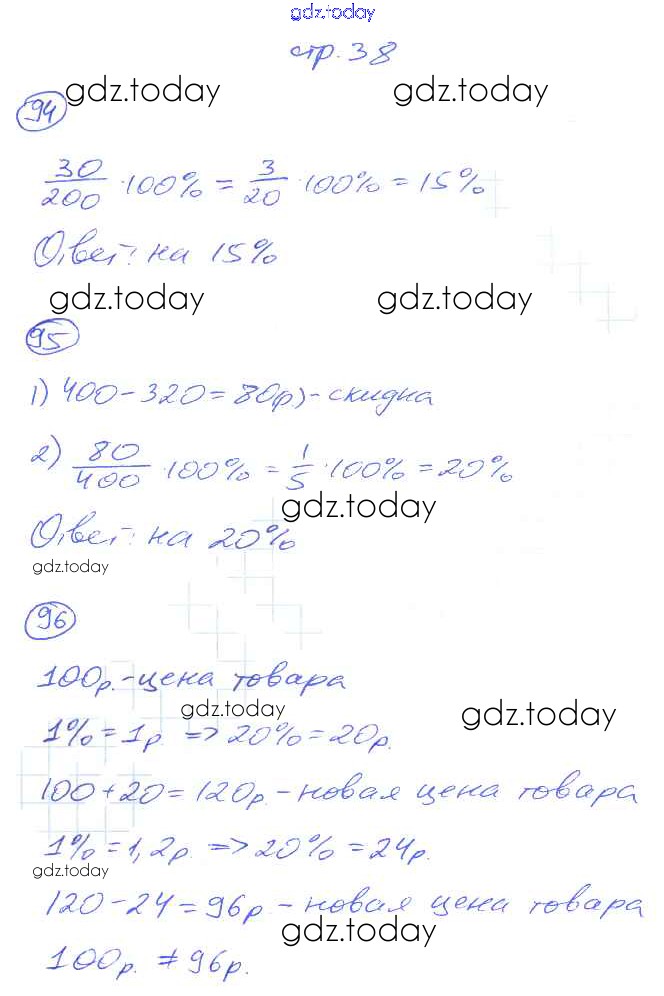 gdz.today
стр. 38
94 gdz.today gdz.today
30/200 · 100% = 3/20 · 100% = 15%
Ответ: на 15%
gdz.today gdz.today
95
1) 400 - 320 = 80(р) - скидка
2) 80/400 · 100% = 1/5 · 100% = 20%
gdz.today
Ответ: на 20%
gdz.today
96
100р. - цена товара
gdz.today gdz.today
1% = 1р. => 20% = 20р.
100 + 20 = 120р. - новая цена товара
1% = 1,2р. => 20% = 24р.
gdz.today
120 - 24 = 96р. - новая цена товара
gdz.today
100р. ≠ 96р.